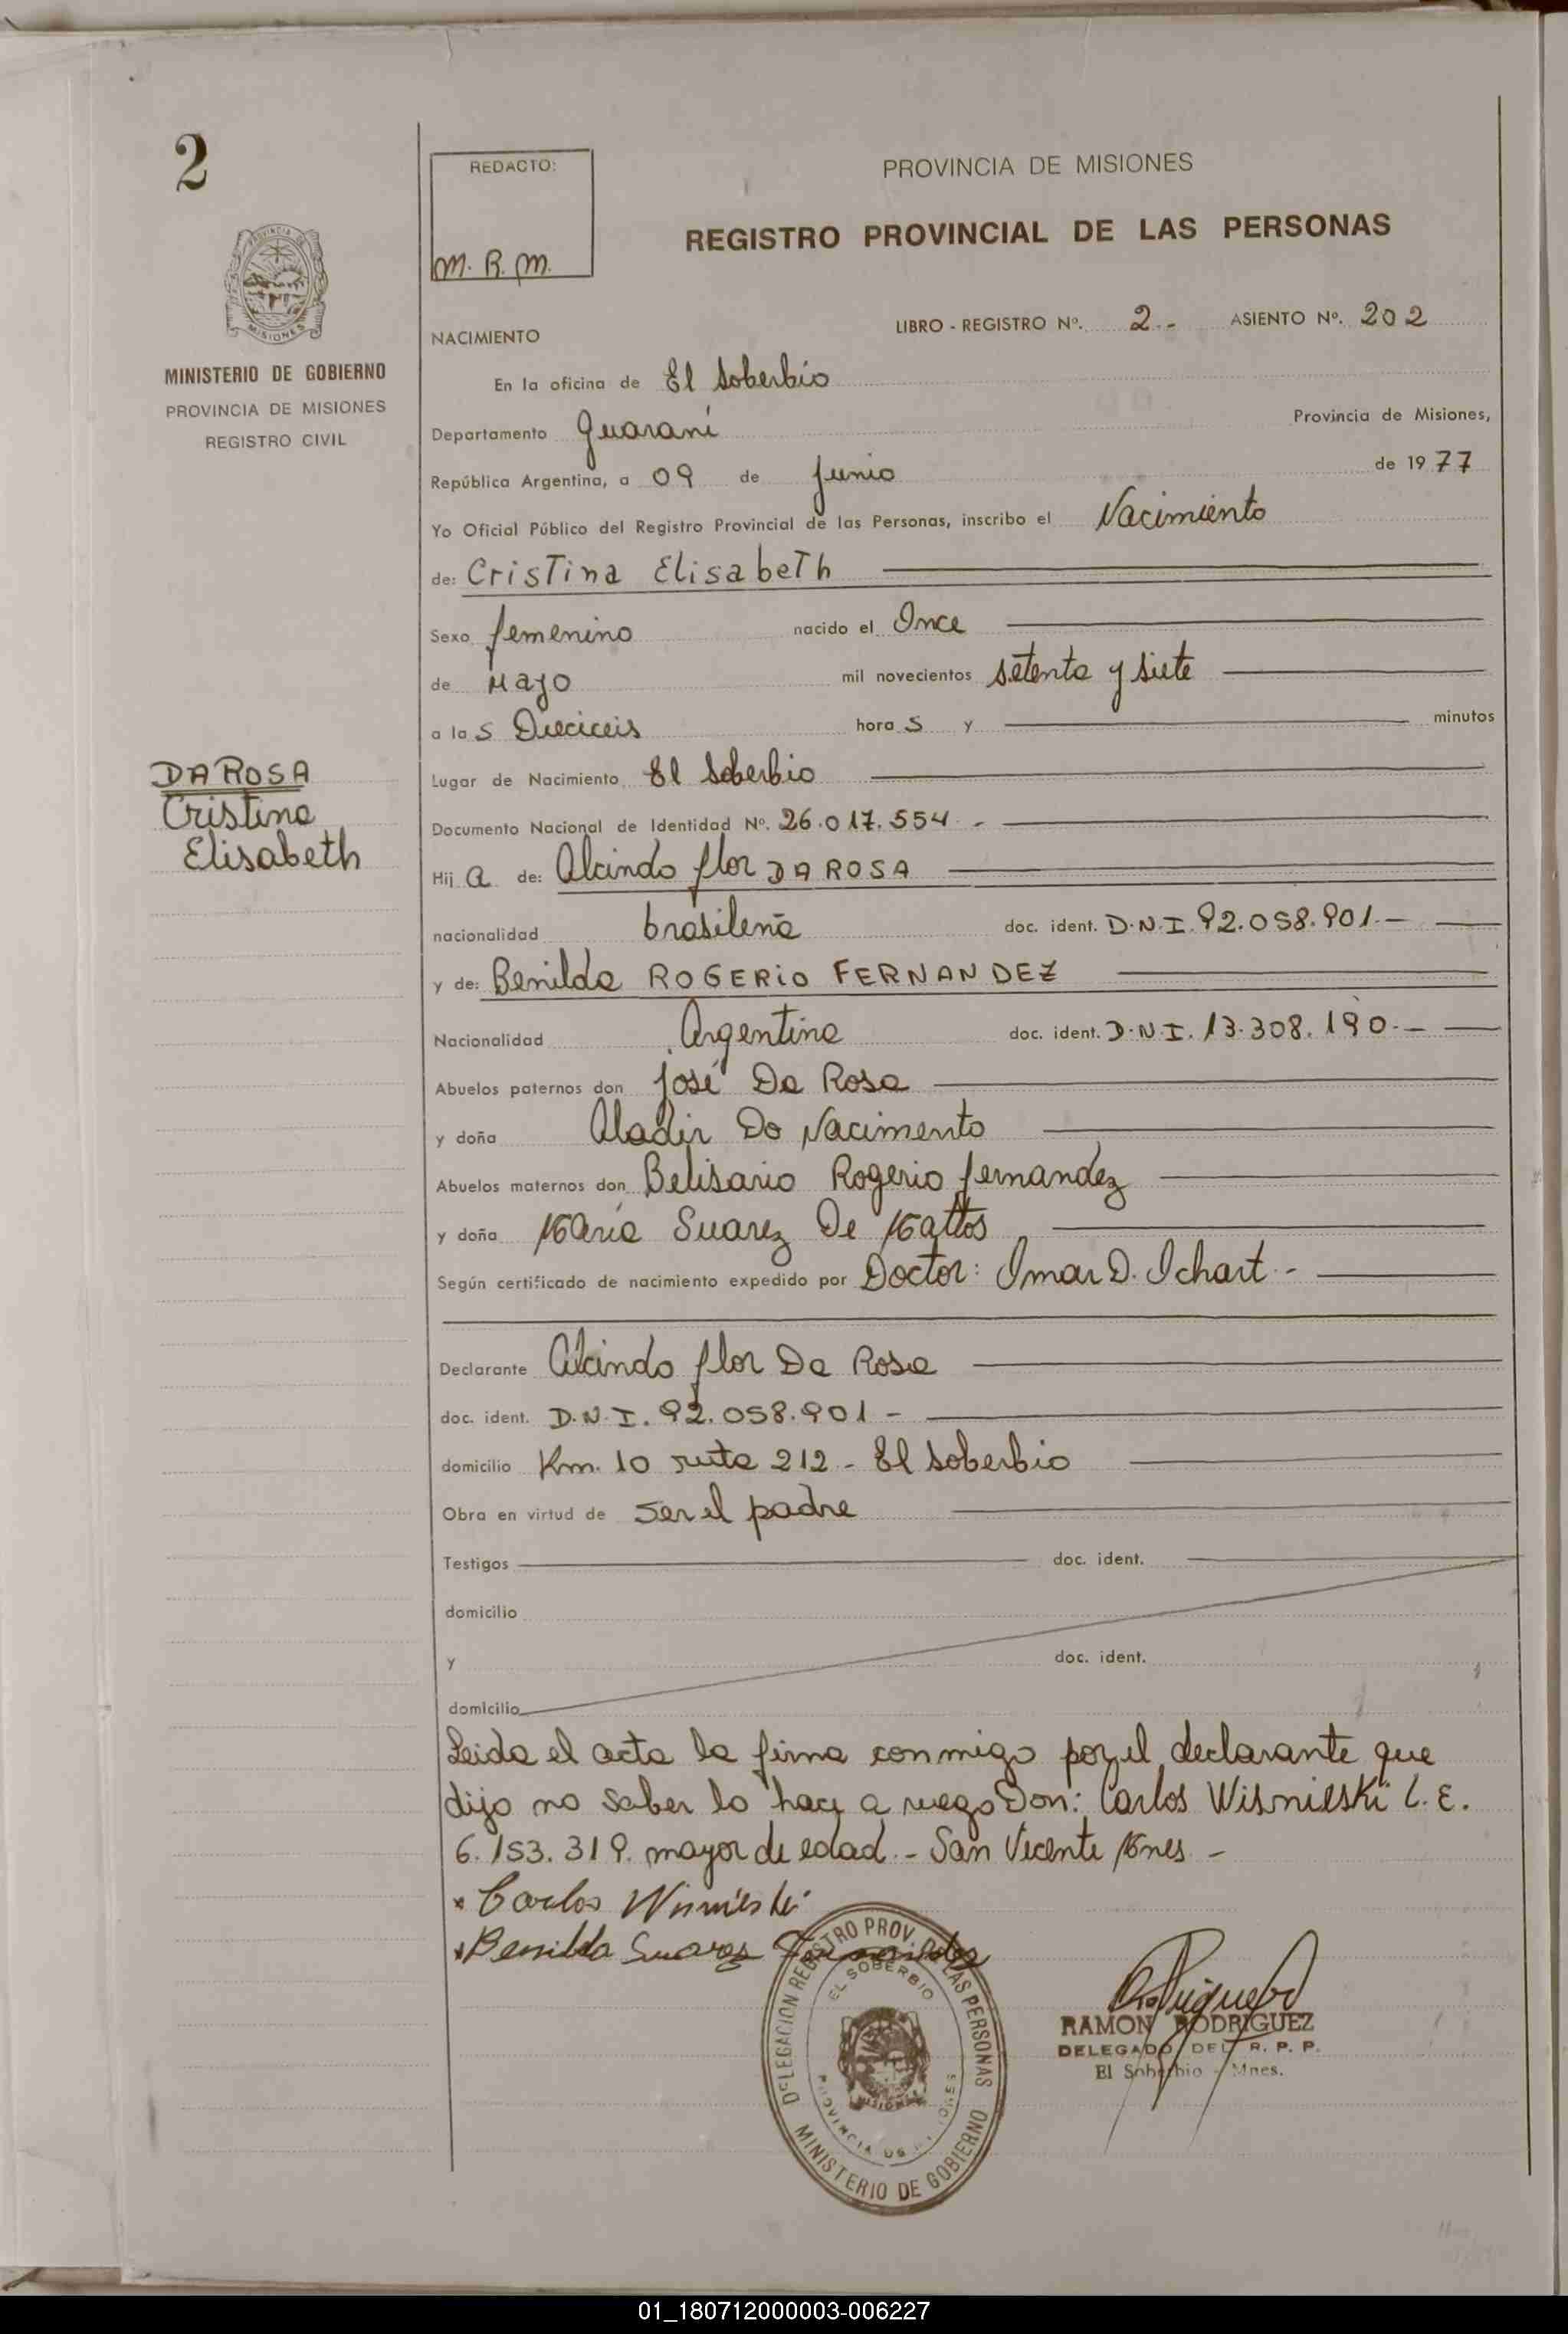 2
REDACTO:
M. R. M.
PROVINCIA DE MISIONES
REGISTRO PROVINCIAL DE LAS PERSONAS
PROVINCIA DE
MISIONES
MINISTERIO DE GOBIERNO
PROVINCIA DE MISIONES
REGISTRO CIVIL
LIBRO - REGISTRO Nº. 2.- ASIENTO Nº. 202
NACIMIENTO
En la oficina de El Soberbio
Departamento Guaraní Provincia de Misiones,
República Argentina, a 09 de Junio de 1977
Yo Oficial Público del Registro Provincial de las Personas, inscribo el Nacimiento
de: Cristina Elisabeth
Sexo femenino nacido el Once
de Mayo mil novecientos setenta y siete
a las Dieciceis horas y minutos
DA ROSA
Cristina
Elisabeth
Lugar de Nacimiento El Soberbio
Documento Nacional de Identidad Nº. 26.017.554.-
Hija de: Alcindo flor DA ROSA
nacionalidad brasileña doc. ident. D.N.I. 92.058.901.-
y de: Benilda ROGERIO FERNANDEZ
Nacionalidad Argentina doc. ident. D.N.I. 13.308.190.-
Abuelos paternos don José Da Rosa
y doña Aladir Do Nacimento
Abuelos maternos don Belisario Rogerio fernandez
y doña Maria Suarez De Mattos
Según certificado de nacimiento expedido por Doctor: Omar D. Ichart.-
Declarante Alcindo flor Da Rosa
doc. ident. D.N.I. 92.058.901-
domicilio Km. 10 ruta 212 - El Soberbio
Obra en virtud de ser el padre
Testigos doc. ident.
domicilio
y doc. ident.
domicilio
Leida el acta la firma conmigo por el declarante que
dijo no saber lo hace a ruego Don: Carlos Wisnieski L.E.
6.153.319. mayor de edad.- San Vicente Mnes.-
× Carlos Wisnieski
× Benilda Suarez Fernandez
DELEGACION REGISTRO PROV. DE LAS PERSONAS
EL SOBERBIO
MISIONES
PROVINCIA DE MISIONES
MINISTERIO DE GOBIERNO
RAMON RODRIGUEZ
DELEGADO DEL R. P. P.
El Soberbio - Mnes.
01_180712000003-006227